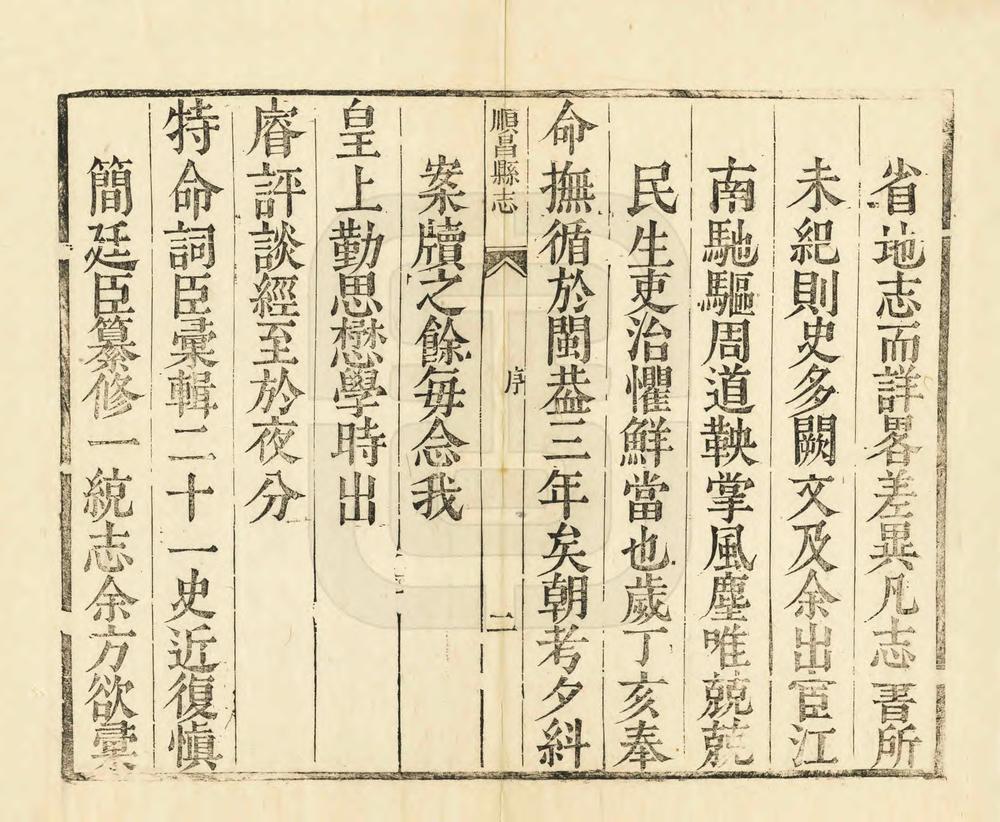 省地志而詳畧差異凡志書所
未紀則史多闕文及余出宦江
南馳驅周道鞅掌風塵唯兢兢
民生吏治懼鮮當也歲丁亥奉
命撫循於閩葢三年矣朝考夕糾
順昌縣志 序 二
案牘之餘每念我
皇上勤思懋學時出
睿評談經至於夜分
特命詞臣彙輯二十一史近復慎
簡廷臣纂修一統志余方欲彙